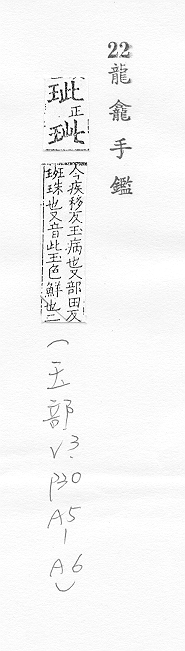 22 龍龕手鑑
玼正
今疾移反玉病也又部田反
班珠也又音此玉色鮮也二
(玉部 V3. P30 A5-A6)